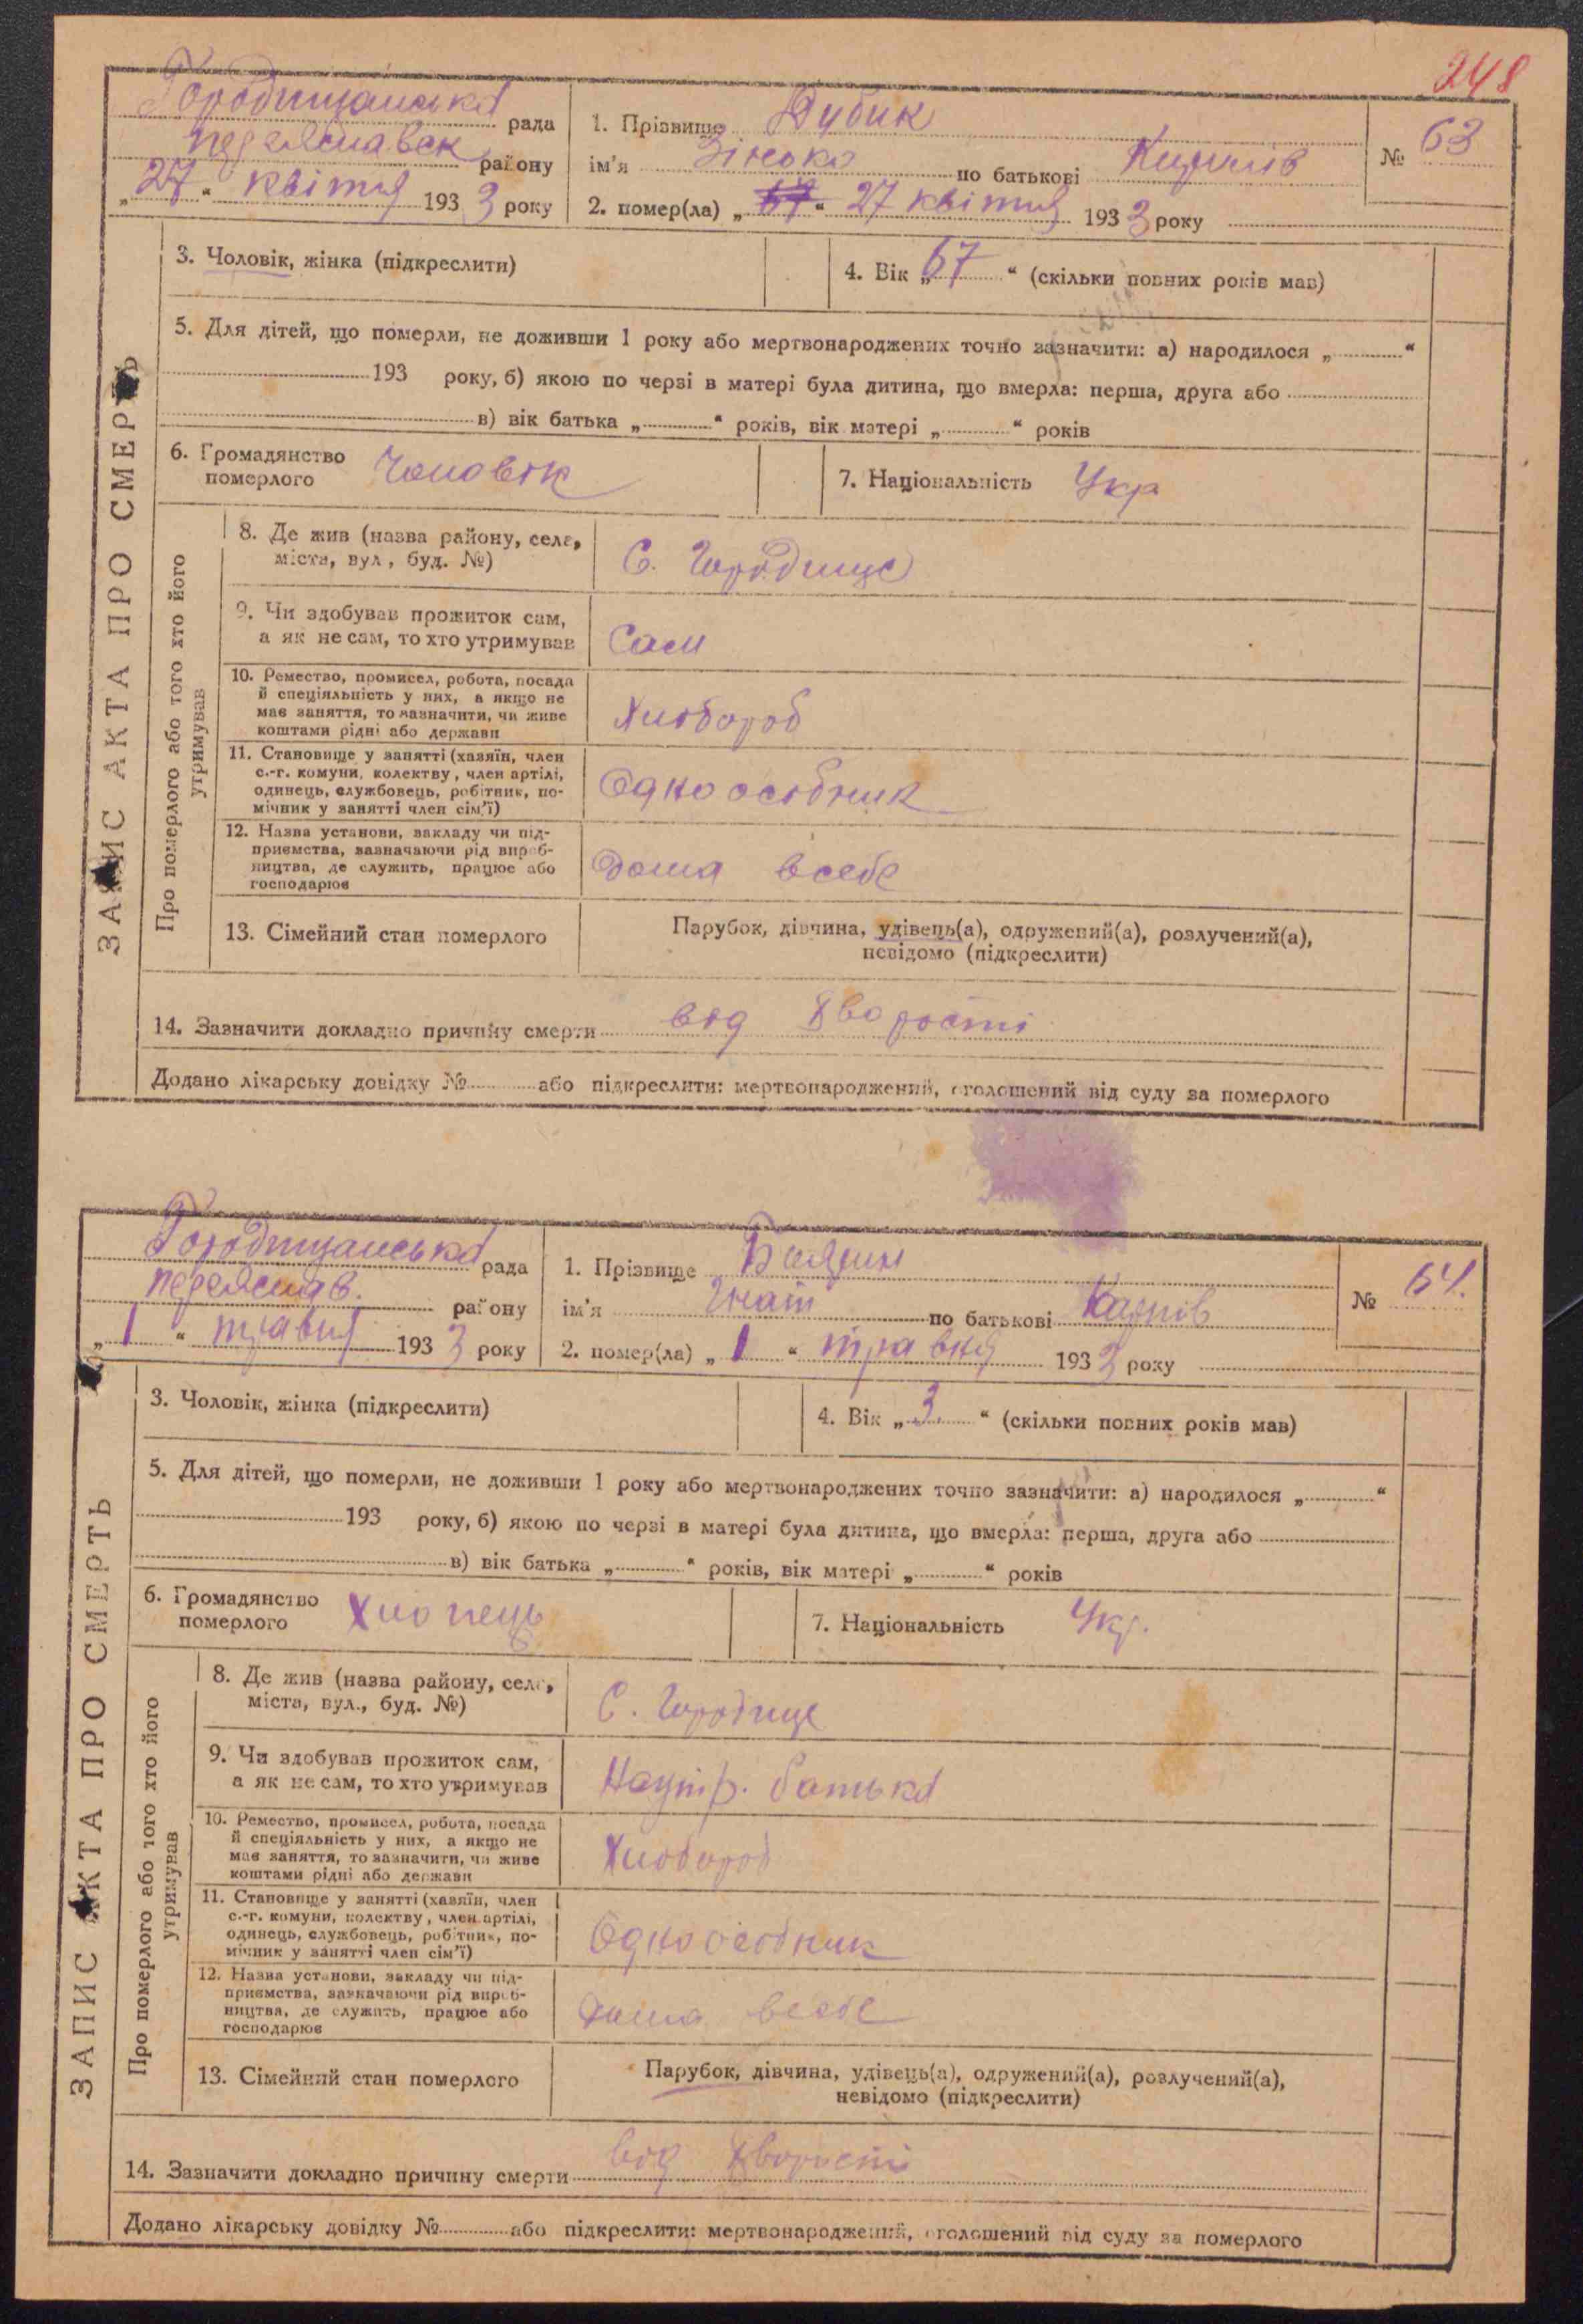 248
ЗАПИС АКТА ПРО СМЕРТЬ
Городищанська рада
Переяславск району
„ 27 “ квітня 193 3 року
1. Прізвище Дубик
ім'я Зінько по батькові Кирилів
№ 63
2. помер(ла) „ “ 27 квітня 193 3 року
3. Чоловік, жінка (підкреслити)
4. Вік „ 67 “ (скільки повних років мав)
5. Для дітей, що померли, не доживши 1 року або мертвонароджених точно зазначити: а) народилося „ “
193 року, б) якою по черзі в матері була дитина, що вмерла: перша, друга або
в) вік батька „ “ років, вік матері „ “ років
6. Громадянство
померлого
Чоловік
7. Національність Укр
Про померлого або того хто його
утримував
8. Де жив (назва району, села,
міста, вул., буд. №)
С. Городище
9. Чи здобував прожиток сам,
а як не сам, то хто утримував
Сам
10. Ремество, промисел, робота, посада
й спеціяльність у них, а якщо не
має заняття, то зазначити, чи живе
коштами рідні або держави
Хлібороб
11. Становище у занятті (хазяїн, член
с.-г. комуни, колективу, член артілі,
одинець, службовець, робітник, по-
мічник у занятті член сім'ї)
Одноосібник
12. Назва установи, закладу чи під-
приємства, зазначаючи рід вироб-
ництва, де служить, працює або
господарює
Дома всебе
13. Сімейний стан померлого
Парубок, дівчина, удівець(а), одружений(а), розлучений(а),
невідомо (підкреслити)
14. Зазначити докладно причину смерти від Хворості
Додано лікарську довідку № або підкреслити: мертвонароджений, оголошений від суду за померлого
ЗАПИС АКТА ПРО СМЕРТЬ
Городищанська рада
Переяслав. району
„ 1 “ травня 193 3 року
1. Прізвище
ім'я Гнат по батькові Карпів
№ 64.
2. помер(ла) „ 1 “ травня 193 3 року
3. Чоловік, жінка (підкреслити)
4. Вік „ 3 “ (скільки повних років мав)
5. Для дітей, що померли, не доживши 1 року або мертвонароджених точно зазначити: а) народилося „ “
193 року, б) якою по черзі в матері була дитина, що вмерла: перша, друга або
в) вік батька „ “ років, вік матері „ “ років
6. Громадянство
померлого
Хлопець
7. Національність Укр.
Про померлого або того хто його
утримував
8. Де жив (назва району, села,
міста, вул., буд. №)
С. Городище
9. Чи здобував прожиток сам,
а як не сам, то хто утримував
Наутр. батька
10. Ремество, промисел, робота, посада
й спеціяльність у них, а якщо не
має заняття, то зазначити, чи живе
коштами рідні або держави
Хлібороб
11. Становище у занятті (хазяїн, член
с.-г. комуни, колективу, член артілі,
одинець, службовець, робітник, по-
мічник у занятті член сім'ї)
Одноосібник
12. Назва установи, закладу чи під-
приємства, зазначаючи рід вироб-
ництва, де служить, працює або
господарює
Дома всебе
13. Сімейний стан померлого
Парубок, дівчина, удівець(а), одружений(а), розлучений(а),
невідомо (підкреслити)
14. Зазначити докладно причину смерти від Хворості
Додано лікарську довідку № або підкреслити: мертвонароджений, оголошений від суду за померлого